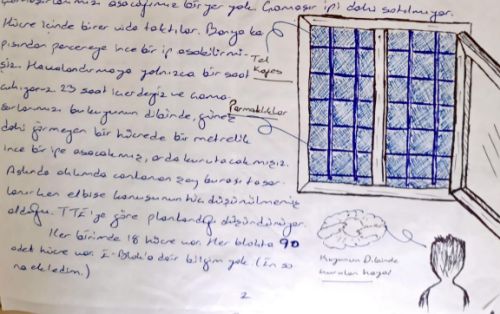 çamaşırlarımızı asacağımız bir yer yok. Çamaşır ipi dahi satılmıyor.
Hücre içinde birer vida taktılar. Banyo ka-
pısından pencereye ince bir ip asabilirmi-
şiz. Havalandırmaya yalnızca bir saat
çıkıyoruz. 23 saat içerdeyiz ve çama-
şırlarımızı bu kuyunun dibinde, güneş
dahi görmeyen bir hücrede bir metrelik
ince bir ipe asacakmışız, orda kurutacakmışız.
Aslında aklımda canlanan şey burası tasar-
lanırken elbise konusunun hiç düşünülmemiş
olduğu. TTE'ye göre planlandığı düşündürüyor.
Her birimde 18 hücre var. Her blokta 90
adet hücre var. I-Blok'a dair bilgim yok. (En so-
na ekledim.)
Tel
Kafes
Parmaklıklar
Kuyunun Dibinde
kurulan hayal
2